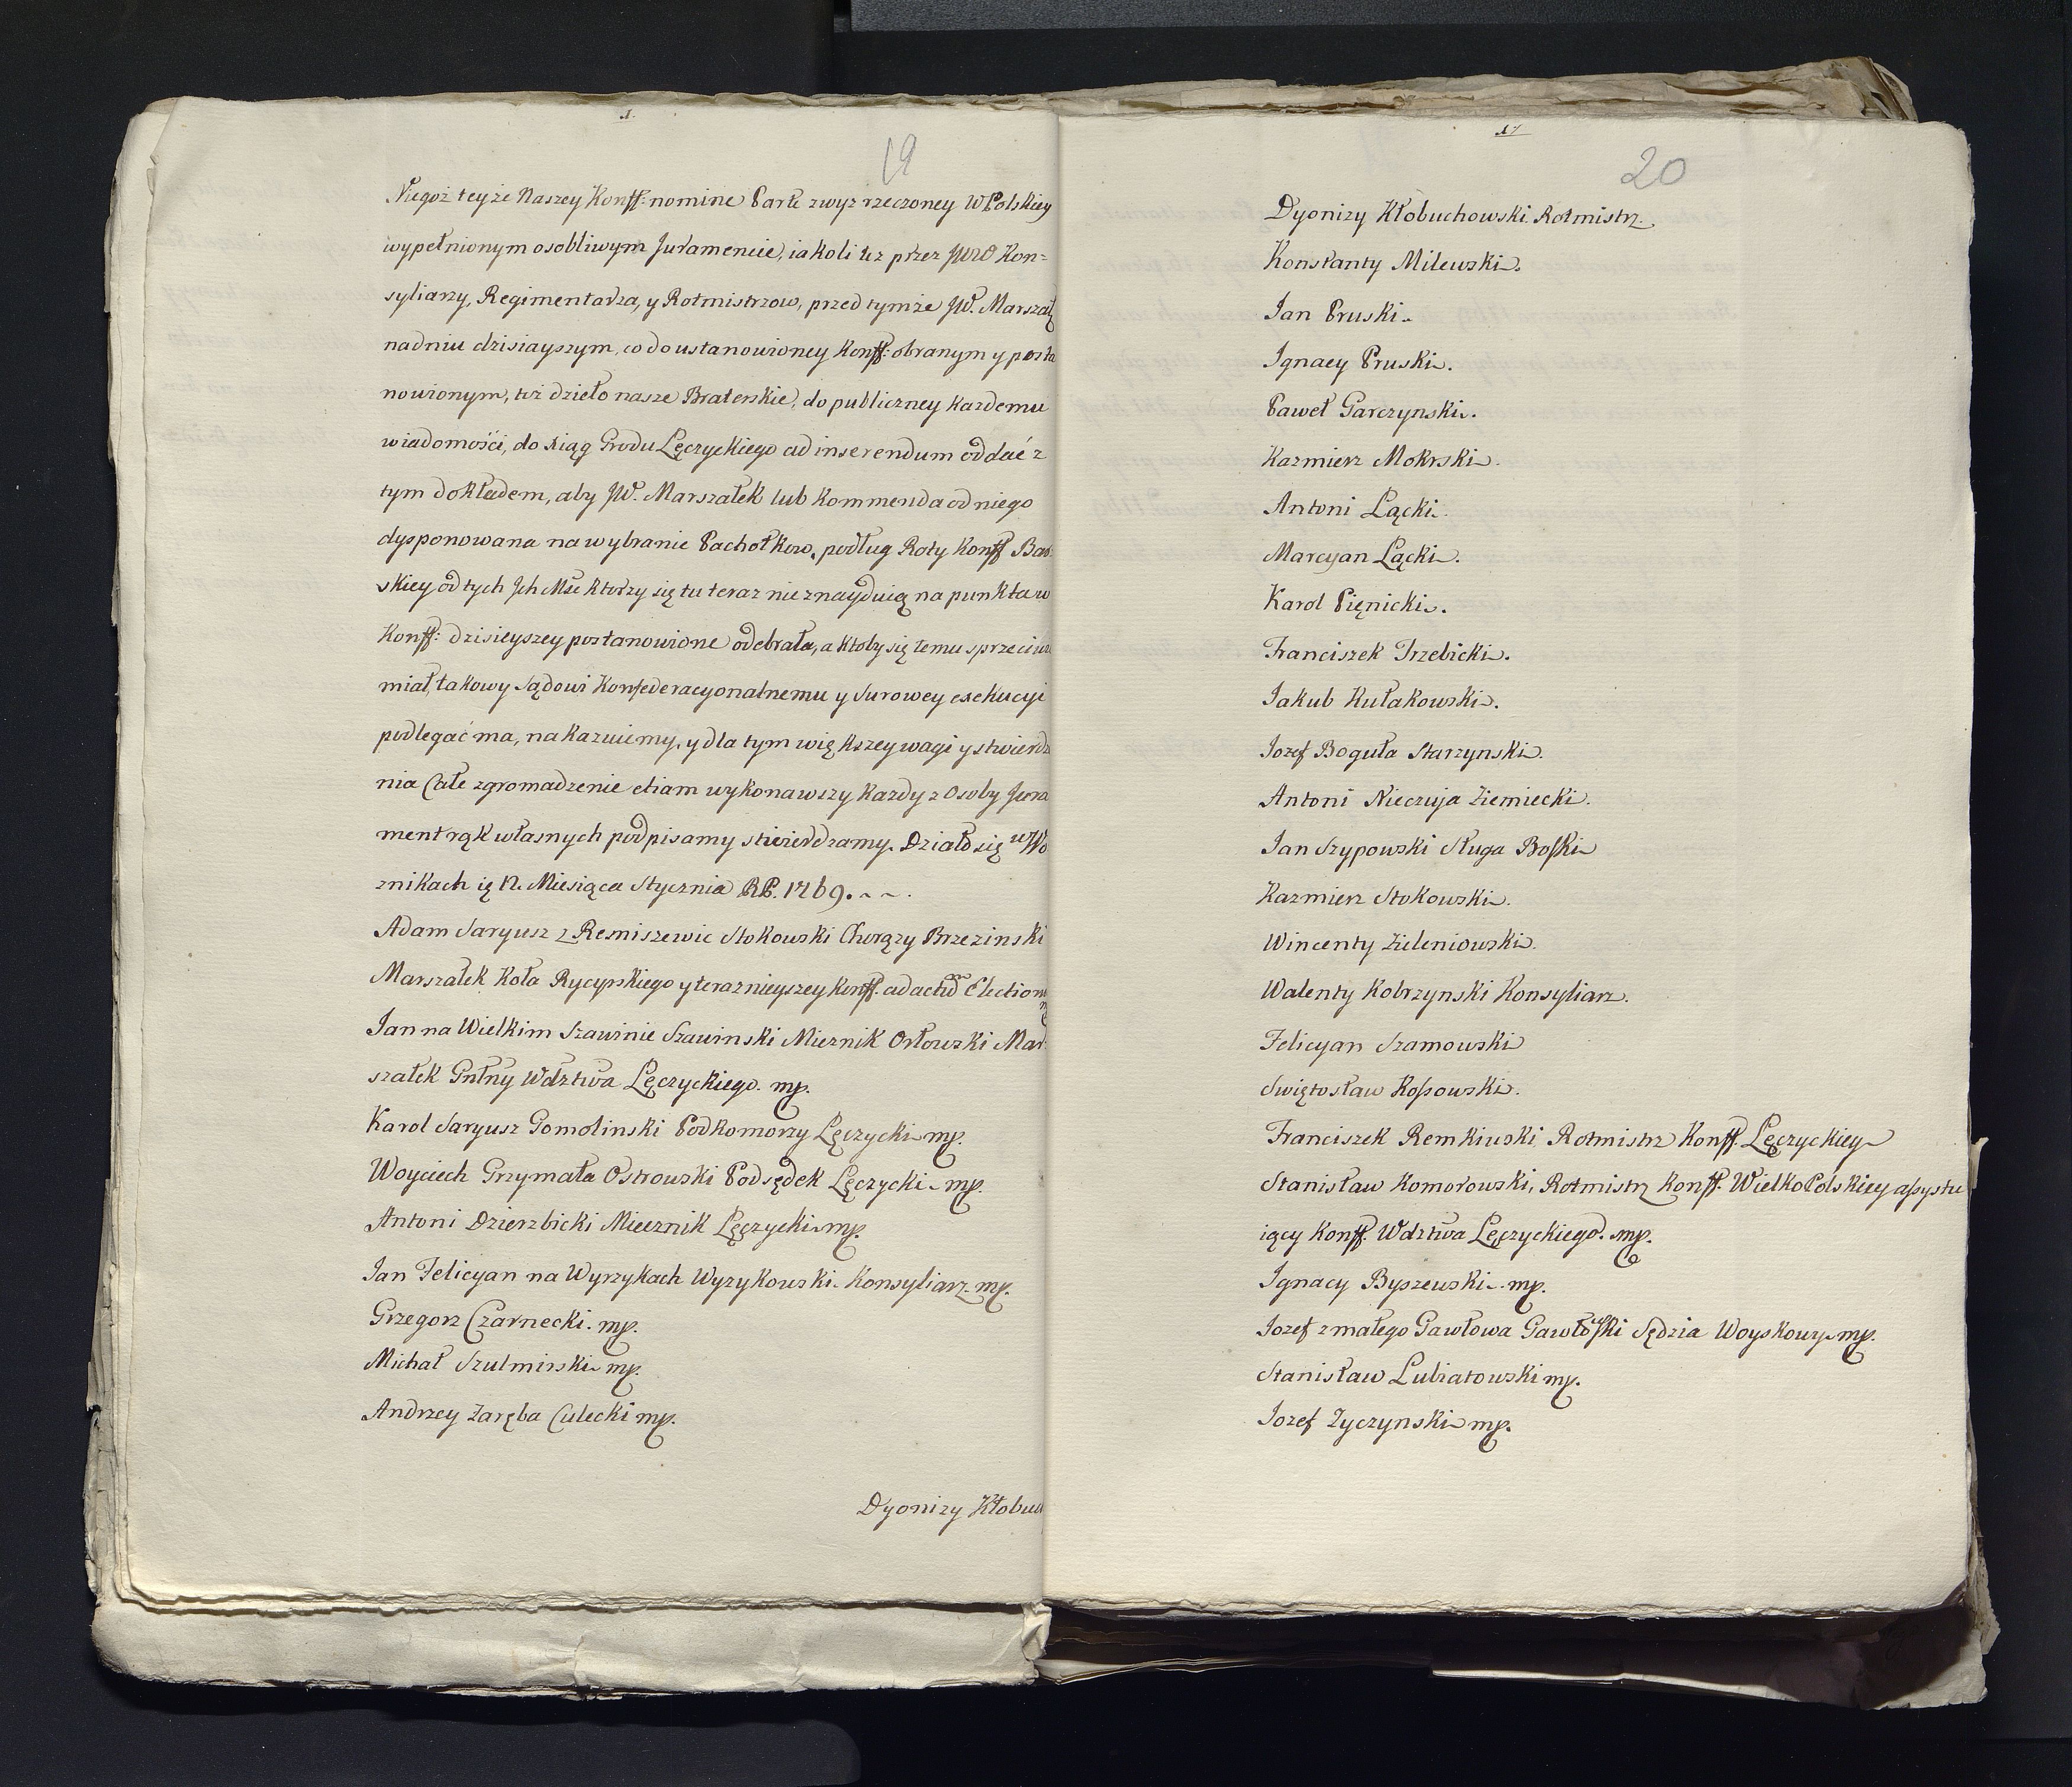 19
Niegoż teyże Naszey Konff: nomine Parte zwyż rzeczoney WPolskiey
wypełnionym osobliwym Juramencie, iakoli tez przez JWW Kon=
syliarzy, Regimentarza, y Rotmistrzow, przed tymże JW. Marszałk
nadniu dzisiayszym, co do ustanowioney Konff: obranym y posta
nowionym, też dzieło nasze Braterskie, do publiczney Kazdemu
wiadomości, do Xiąg Grodu Lęczyckiego ad inserendum oddać z
tym dokładem, aby JW. Marszałek lub Kommenda od niego
dysponowana na wybranie Pachołkow, podług Roty Konff Bar
skiey od tych Jch Mśc ktorzy się tu teraz nie znayduią na punkta w
Konff: dzisieyszey postanowione odebrała, a ktoby się temu sprzeciw
miał, takowy Sądowi Konfederacyonalnemu y Surowey exekucyi
podlegać ma, nakazuiemy, y dla tym większey wagi y stwierdz
nia Całe zgromadzenie etiam wykonawszy Kazdy z Osoby Jura
ment rąk własnych podpisamy stwierdzamy. Działo się w Wo
znikach 12. Miesiąca Stycznia RP. 1769.
Adam Saryusz z Remiszewic Stokowski Chorązy Brzezinski
Marszałek Koła Rycyrskiego y teraznieyszey Konff. ad actum Election
Jan na Wielkim Szawinie Szawinski Miecznik Orłowski Mar
szałek Gnlny Wdztwa Lęczyckiego. mp.
Karol Saryusz Gomolinski Podkomorzy Lęczycki mp.
Woyciech Grzymała Ostrowski Podsędek Lęczycki mp.
Antoni Dzierzbicki Miecznik Lęczycki mp.
Jan Felicyan na Wyrzykach Wyzykowski Konsyliarz. mp.
Grzegorz Czarnecki. mp.
Michał Szulmirski mp.
Andrzey Zaręba Culecki mp.
Dyonizy Kłobu
17
20
Dyonizy Kłobuchowski Rotmistrz.
Konstanty Milewski.
Jan Pruski.
Ignacy Pruski.
Paweł Garczynski.
Kazmierz Mokrski.
Antoni Łącki.
Marcyan Łącki.
Karol Pięnicki.
Franciszek Trzebicki.
Jakub Kułakowski.
Jozef Boguła Starzynski.
Antoni Nieczuja Ziemiecki.
Jan Szypowski Sługa Boski
Kazmierz Stokowski.
Wincenty Zieleniowski.
Walenty Kobrzynski Konsyliarz.
Felicyan Szamowski
Swiętosław Kossowski.
Franciszek Remkiwski Rotmistrz Konff. Lęczyckiey
Stanisław Komorowski, Rotmistrz Konff. WielkoPolskiey assystu
iący Konff. Wdztwa Lęczyckiego. mp.
Ignacy Byszewski mp.
Jozef z małego Gawłowa Gawłowski Sędzia Woyskowy mp.
Stanisław Lubiatowski mp.
Jozef Zyczynski mp.